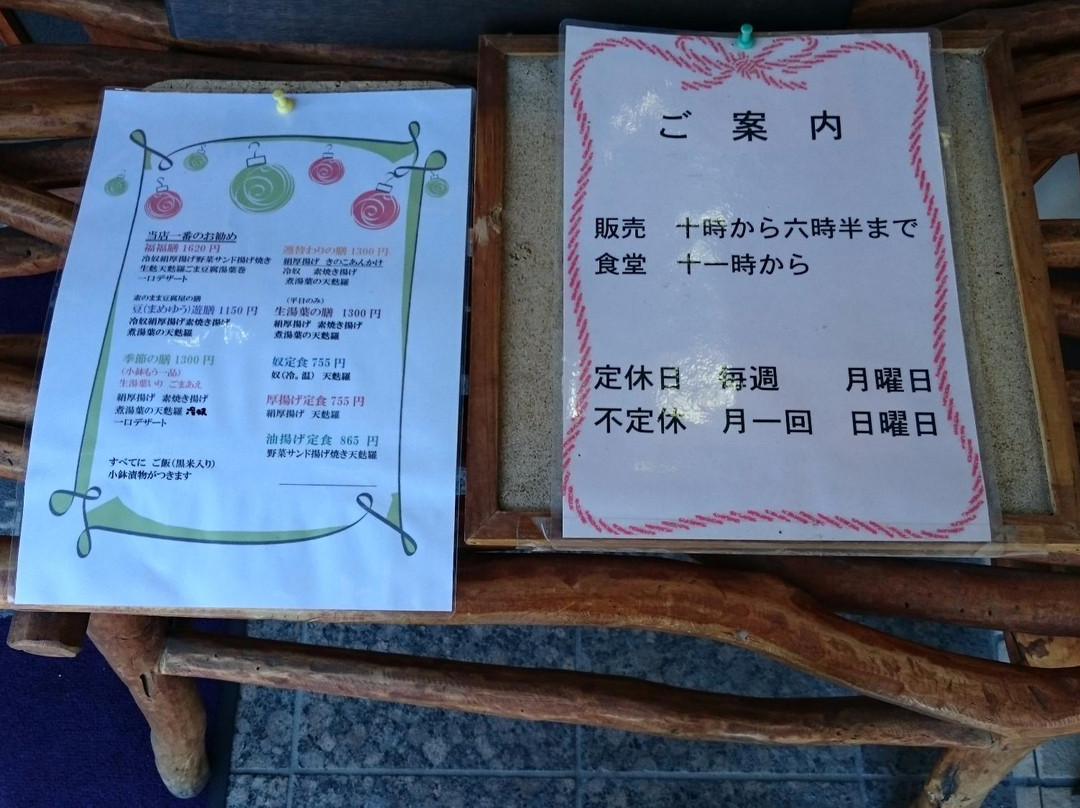 当店一番のお勧め
福福膳 1620 円
冷奴絹厚揚げ野菜サンド揚げ焼き
生麩天麩羅ごま豆腐湯葉巻
一口デザート
素のまま豆腐屋の膳
豆(まめゆう)遊膳 1150 円
冷奴絹厚揚げ素焼き揚げ
煮湯葉の天麩羅
季節の膳 1300 円
(小鉢もう一品)
生湯葉いり ごまあえ
絹厚揚げ 素焼き揚げ
煮湯葉の天麩羅 冷奴
一口デザート
すべてに ご飯(黒米入り)
小鉢漬物がつきます
週替わりの膳 1300 円
絹厚揚げ きのこあんかけ
冷奴 素焼き揚げ
煮湯葉の天麩羅
(平日のみ)
生湯葉の膳 1300 円
絹厚揚げ 素焼き揚げ
煮湯葉の天麩羅
奴定食 755 円
奴(冷。温) 天麩羅
厚揚げ定食 755 円
絹厚揚げ 天麩羅
油揚げ定食 865 円
野菜サンド揚げ焼き天麩羅
ご案内
販売 十時から六時半まで
食堂 十一時から
定休日 毎週 月曜日
不定休 月一回 日曜日